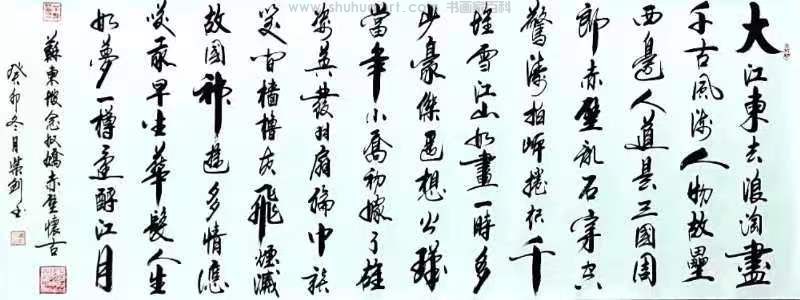 大江東去浪淘盡
千古風流人物故壘
西邊人道是三國周
郎赤壁亂石穿空
驚濤拍岸捲起千
堆雪江山如畫一時多
少豪傑遙想公瑾
當年小喬初嫁了雄
姿英發羽扇綸巾談
笑間檣櫓灰飛煙滅
故國神遊多情應
笑我早生華髮人生
如夢一樽還酹江月
蘇東坡念奴嬌赤壁懷古
癸卯冬月柴剑书
书画家百科